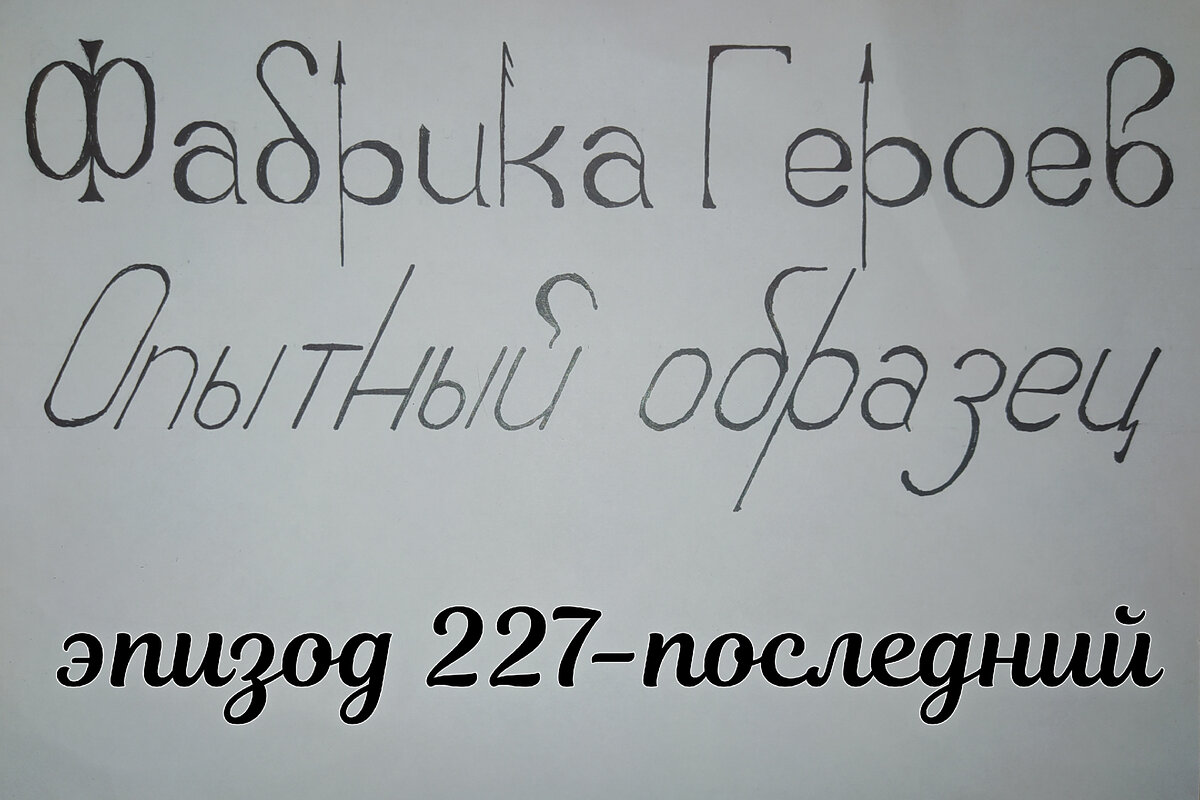 Фабрика Героев
Опытный образец
эпизод 227-последний